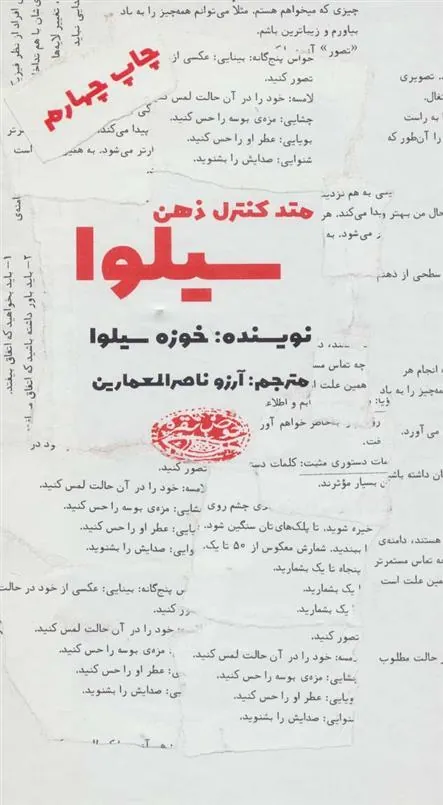 چیزی که میخواهم هستم. مثلاً می‌توانم همه‌چیز را به یاد
بیاورم و زیباترین باشم.
«تصور»
حواس پنج‌گانه: بینایی: عکسی از
تصور کنید.
لامسه: خود را در آن حالت لمس
چشایی: مزه‌ی بوسه را حس کنید.
بویایی: عطر او را حس کنید.
شنوایی: صدایش را بشنوید.
چاپ چهارم
تصویری
به راست
را آن‌طور که
پیدا می‌کند.
متد کنترل ذهن
سیلوا
نویسنده: خوزه سیلوا
مترجم: آرزو ناصرالمعمارین
به هم نزدید
حال من بهتر
می‌شود. به
سطحی از
چه تماس
همین علت
انجام هر
همه‌چیز را به یاد
خواهم آور
می آورد.
۱- باید بخواهید که اتفاق بیفتد.
۲- باید باور داشته باشید که اتفاق
کلمات دستوری مثبت: کلمات
بسیار مؤثرند.
تصور کنید.
لامسه: خود را در آن حالت لمس کنید.
چشایی: مزه‌ی بوسه را حس کنید.
بویایی: عطر او را حس کنید.
شنوایی: صدایش را بشنوید.
چشم روی
خیره شوید. تا پلک‌های‌تان سنگین شود.
ببندید. شمارش معکوس از ۵۰ تا یک.
پنجاه تا یک بشمارید.
یک بشمارید.
یک بشمارید.
هستند، دامنه‌ی
چه تماس مستمرتر
همین علت است
پنج‌گانه: بینایی: عکسی از خود در حالت
کنید.
خود را در آن حالت لمس کنید.
مزه‌ی بوسه را حس کنید.
عطر او را حس کنید.
صدایش را بشنوید.
تصور کنید.
لامسه: خود را در آن حالت لمس کنید.
چشایی: مزه‌ی بوسه را حس کنید.
بویایی: عطر او را حس کنید.
شنوایی: صدایش را بشنوید.
حالت مطلوب